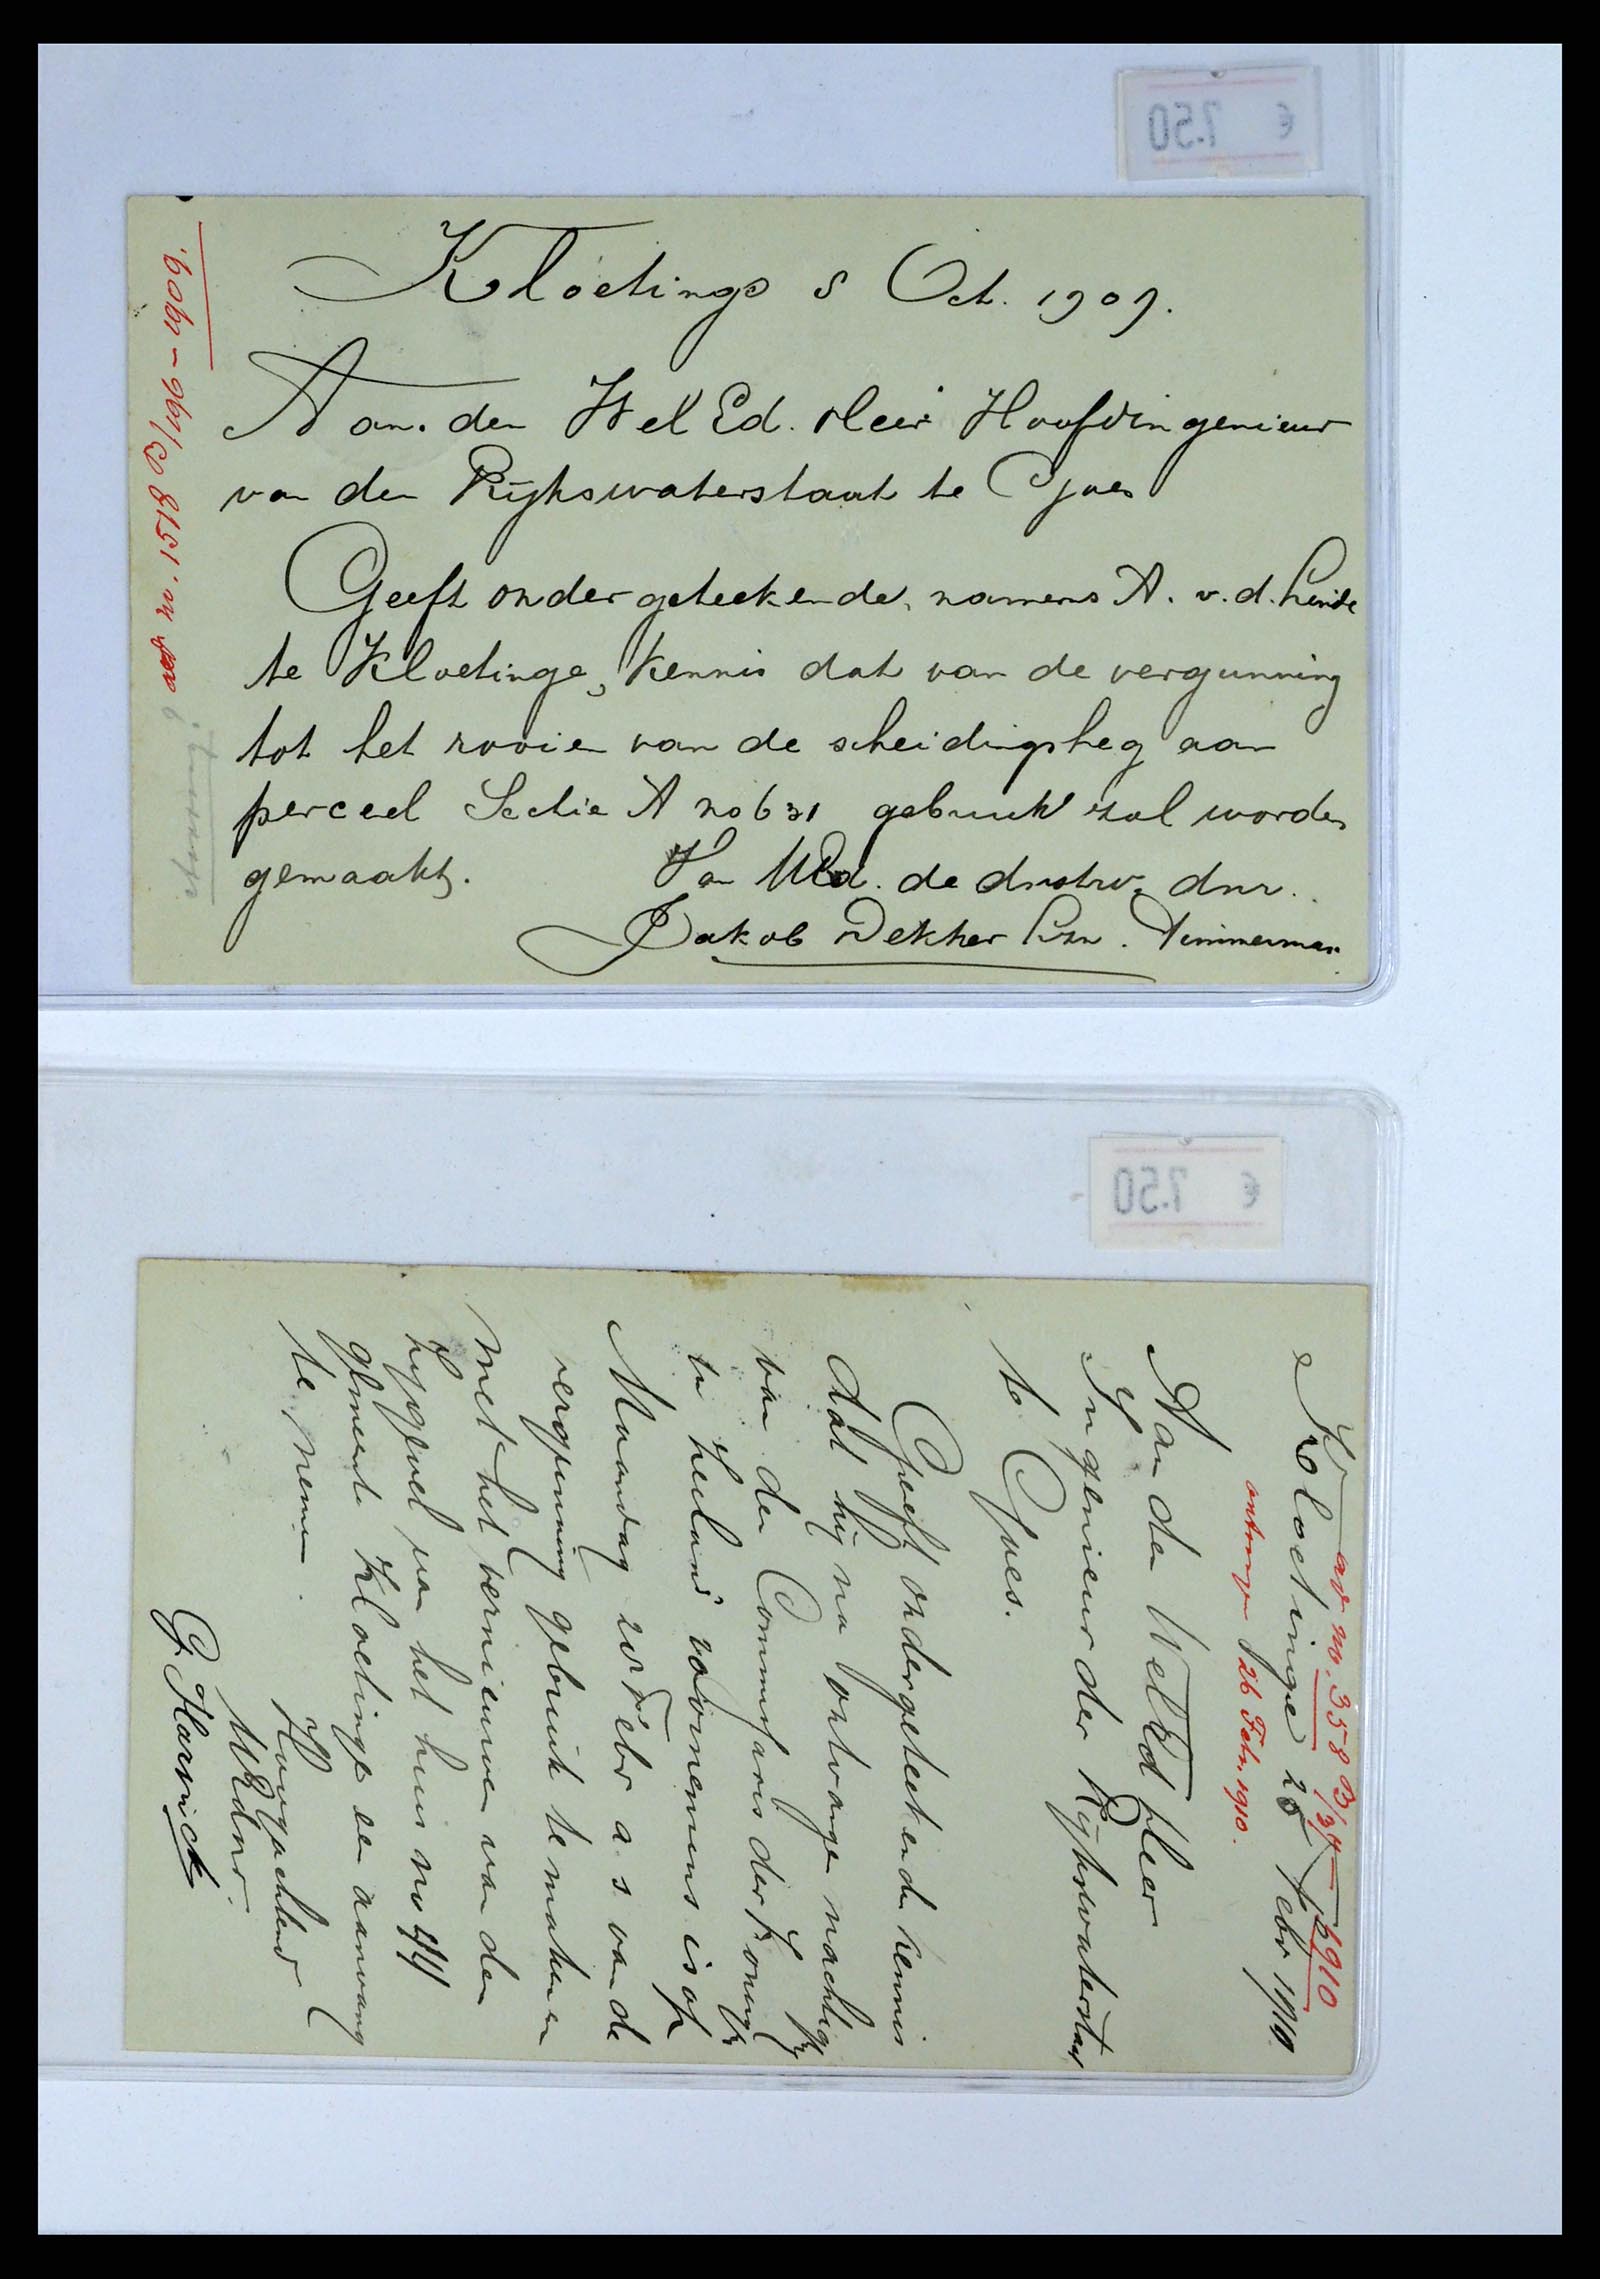 € 7.50
Kloetinge 8 Oct. 1909.
Aan den Wel Ed. Heer Hoofdingenieur
van den Rijkswaterstaat te Goes
Geeft ondergeteekende, namens A. v. d. Linde
te Kloetinge, kennis dat van de vergunning
tot het rooien van de scheidingsheg aan
perceel Sectie A no 631 gebruik zal worden
gemaakt.
Van UEd. de dnstw. dnr.
Jakob Dekker Lzn. Timmerman
no. 1518 B/196 - 1909.
€ 7.50
av no. 358 B/34 1910
Kloetinge 25 Febr 1910
ontvangen 26 Febr. 1910.
Aan den WelEd Heer
Ingenieur der Rijkswaterstaat
te Goes.
Geeft ondergeteekende kennis
dat hij na ontvangen machtig
van den Commisaris der Koning
in Zeeland voornemens is op
Maandag 28 Febr a. s. van de
vergunning gebruik te maken en
met het vernieuwen van den
zijgevel van het huis no 44
gemeente Kloetinge een aanvang
te nemen.
Hoogachtend
UEdnr.
G. Harinck